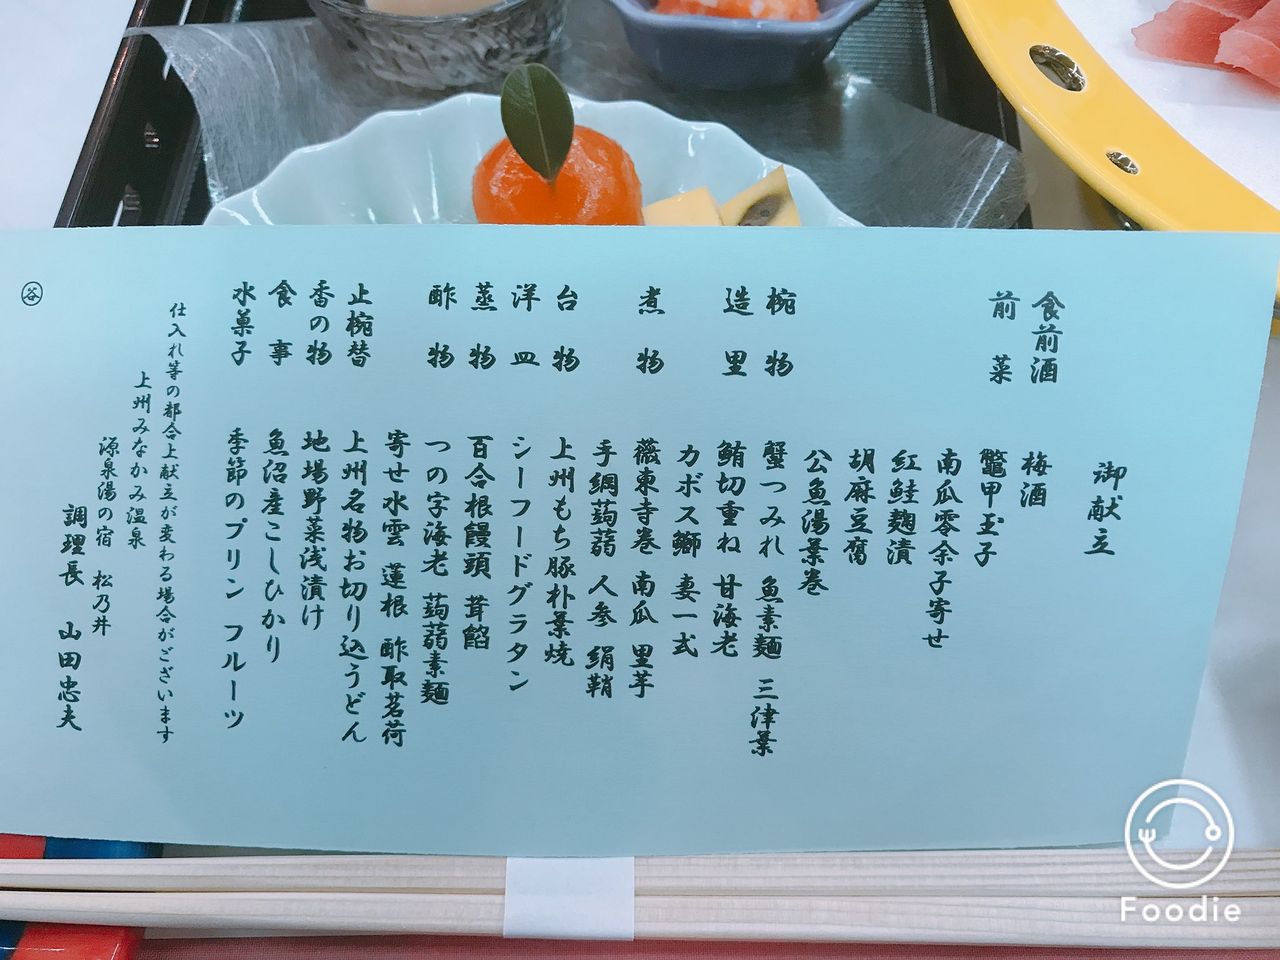 御献立
食前酒 梅酒
前菜 鼈甲玉子
南瓜零余子寄せ
紅鮭麹漬
胡麻豆腐
公魚湯葉巻
椀物 蟹つみれ 魚素麺 三津葉
造里 鮪切重ね 甘海老
カボス鰤 妻一式
煮物 薇東寺巻 南瓜 里芋
手綱蒟蒻 人参 絹鞘
台物 上州もち豚朴葉焼
洋皿 シーフードグラタン
蒸物 百合根饅頭 茸餡
酢物 つの字海老 蒟蒻素麺
寄せ水雲 蓮根 酢取茗荷
止椀替 上州名物お切り込うどん
香の物 地場野菜浅漬け
食事 魚沼産こしひかり
水菓子 季節のプリン フルーツ
仕入れ等の都合上献立が変わる場合がございます
上州みなかみ温泉
源泉湯の宿 松乃井
調理長 山田忠夫
谷
Foodie